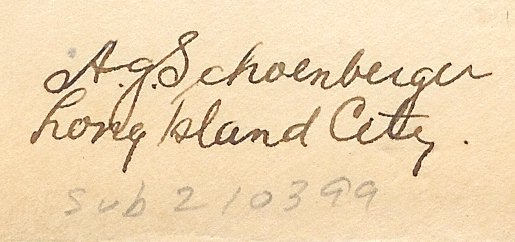 A.G. Schoenberger
Long Island City.
Sub 210399